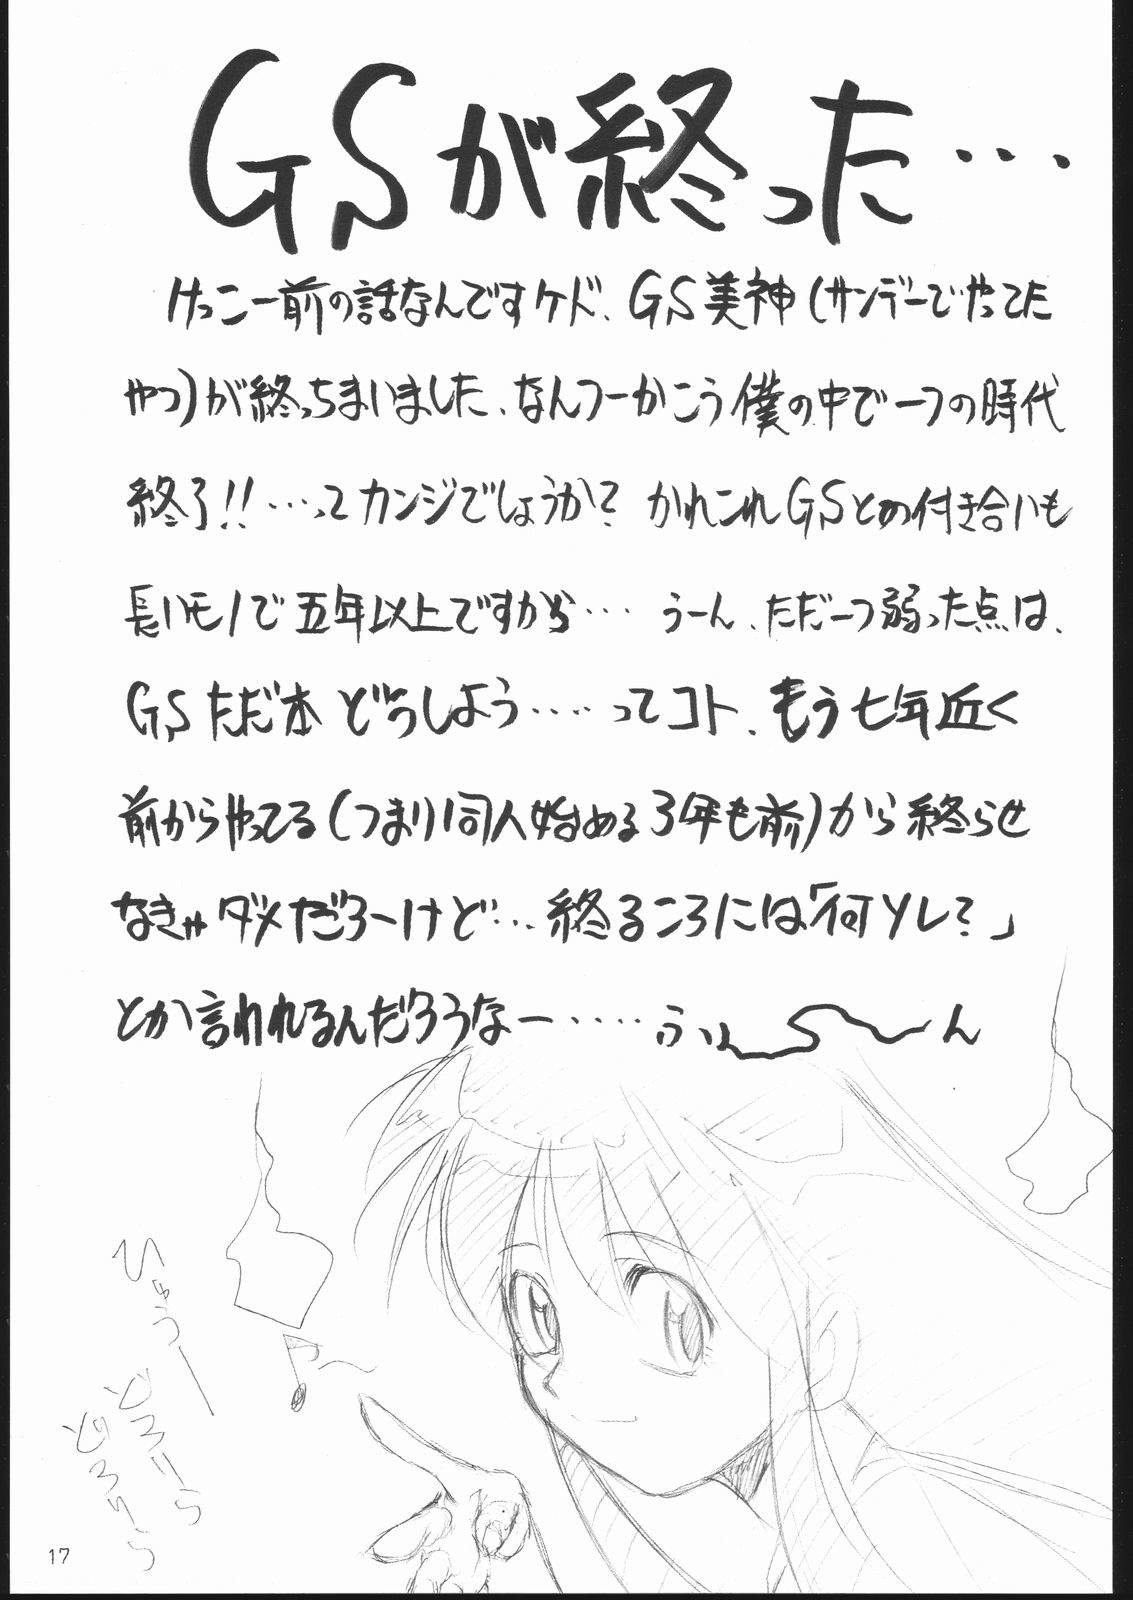 GSが終った…
けっこー前の話なんですケド、GS美神(サンデーでやってた
やつ)が終っちまいました、なんつーかこう僕の中で一つの時代
終了!!…ってカンジでしょうか?かれこれGSとの付き合いも
長いモノで五年以上ですから…うーん、ただ一つ弱った点は、
GSただ本どうしよう……ってコト、もう七年近く
前からやってる(つまり同人始める3年も前)から終らせ
なきゃダメだろーけど…終るころには「何ソレ?」
とか言われるんだろうなー……ふぃ〜ん
ひゅうー
どろりら
どろりら
17